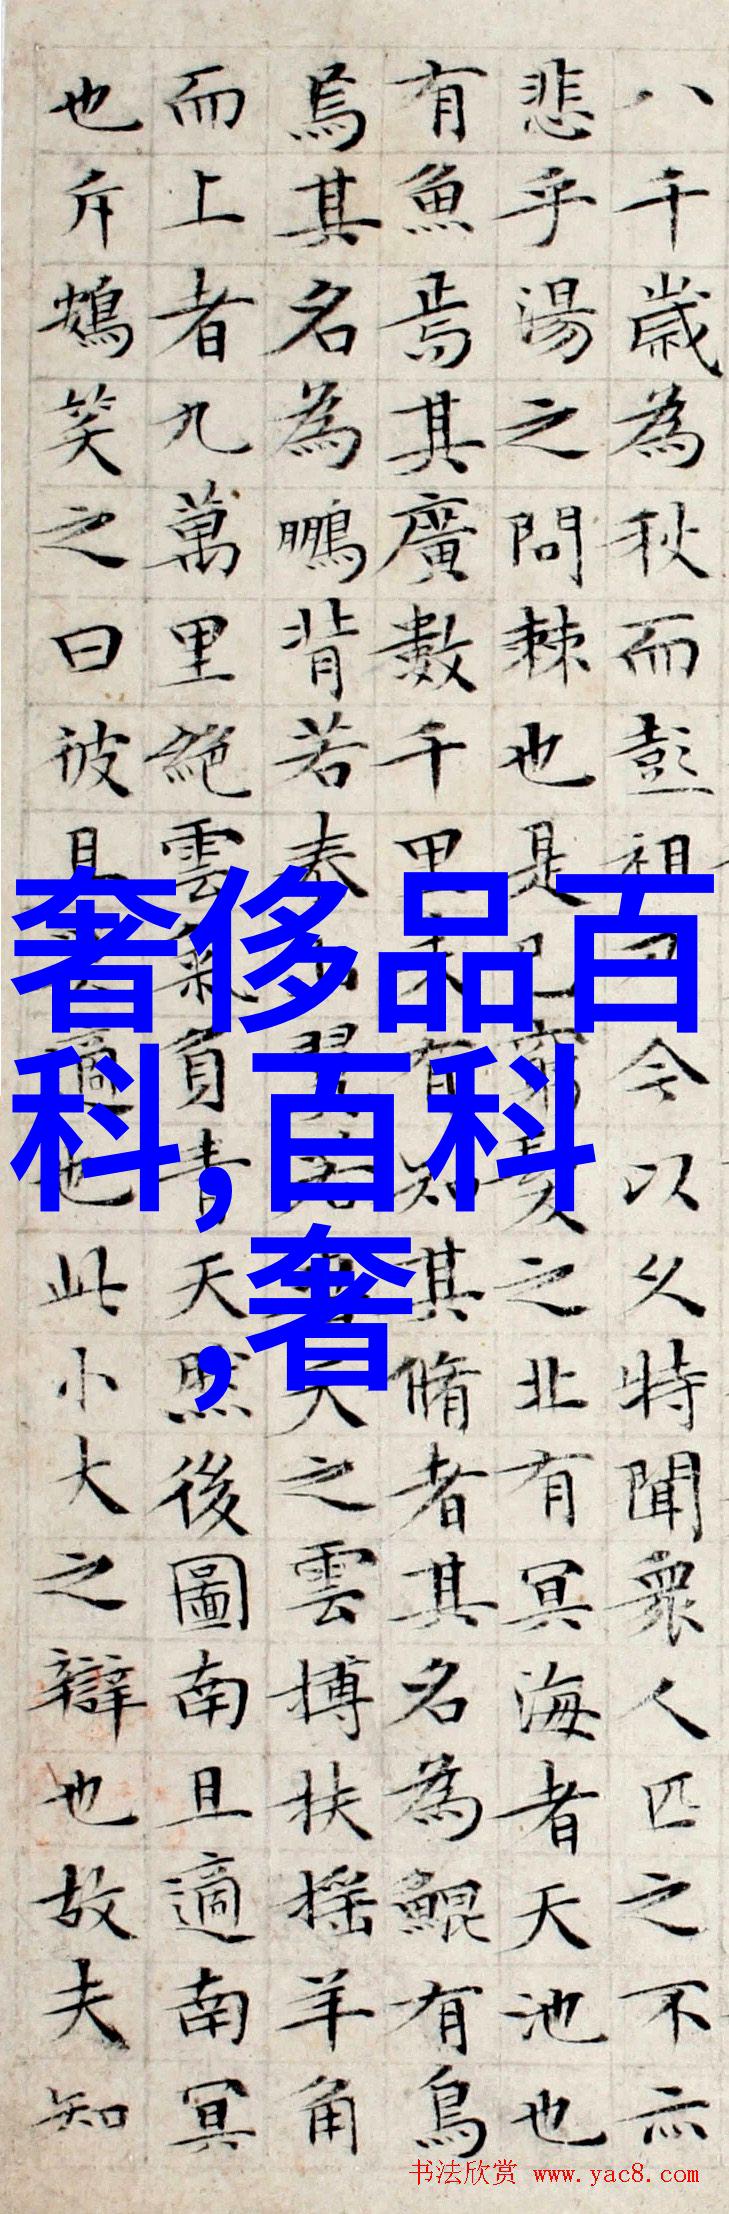 八千歲為秋而彭祖乃今以久特聞衆人匹之不亦
悲乎湯之問棘也是已窮髮之北有冥海者天池也
有魚焉其廣數千里未有知其脩者其名為鯤有鳥
焉其名為鵬背若泰山翼若垂天之雲搏扶摇羊角
而上者九萬里絕雲氣負青天然後圖南且適南冥
也斥鴳笑之曰彼且奚適也此小大之辯也故夫知
奢侈品百
科,百科
,奢
书法欣赏 www.yac8.com